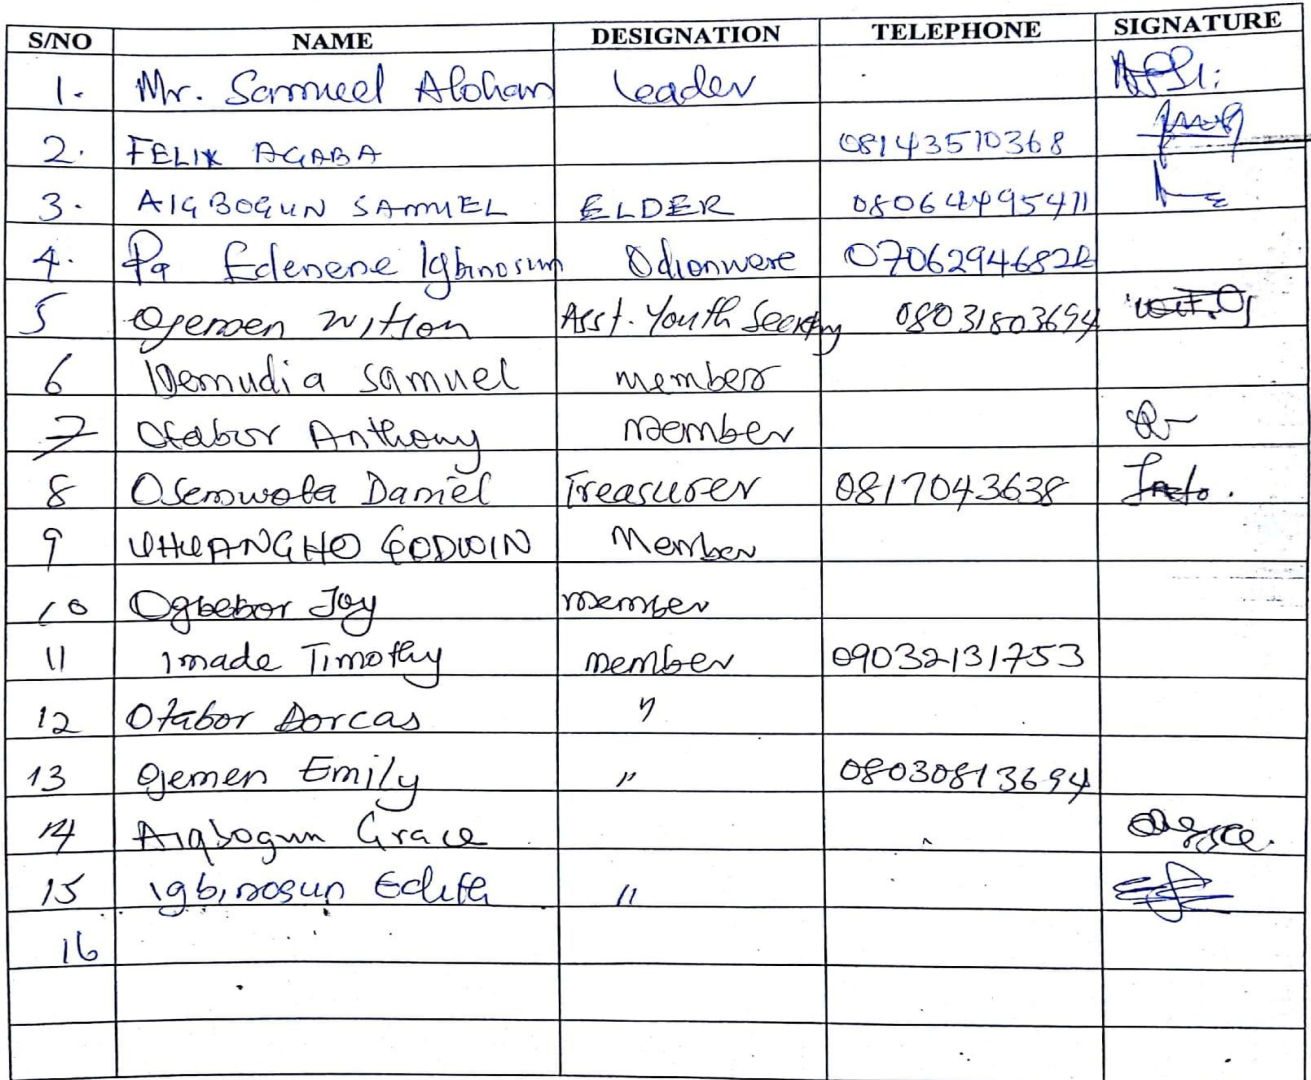 S/NO NAME DESIGNATION TELEPHONE SIGNATURE
1. Mr. Samuel Alohan Leader
2. FELIX AGABA 08143510368
3. AIGBOGUN SAMUEL ELDER 08064495411
4. Pa Edenene Igbinosun Odionwere 07062946822
5 Ojemen Wilson Asst. Youth Secretary 08031803694
6 Idemudia Samuel member
7 Otabor Anthony member
8 Osemwota Daniel Treasurer 0817043638
9 UHUANGHO GODWIN Member
10 Ogbebor Joy member
11 imade Timothy member 09032131753
12 Otabor Dorcas "
13 Ojemen Emily " 08030813694
14 Aigbogun Grace
15 Igbinosun Edith "
16